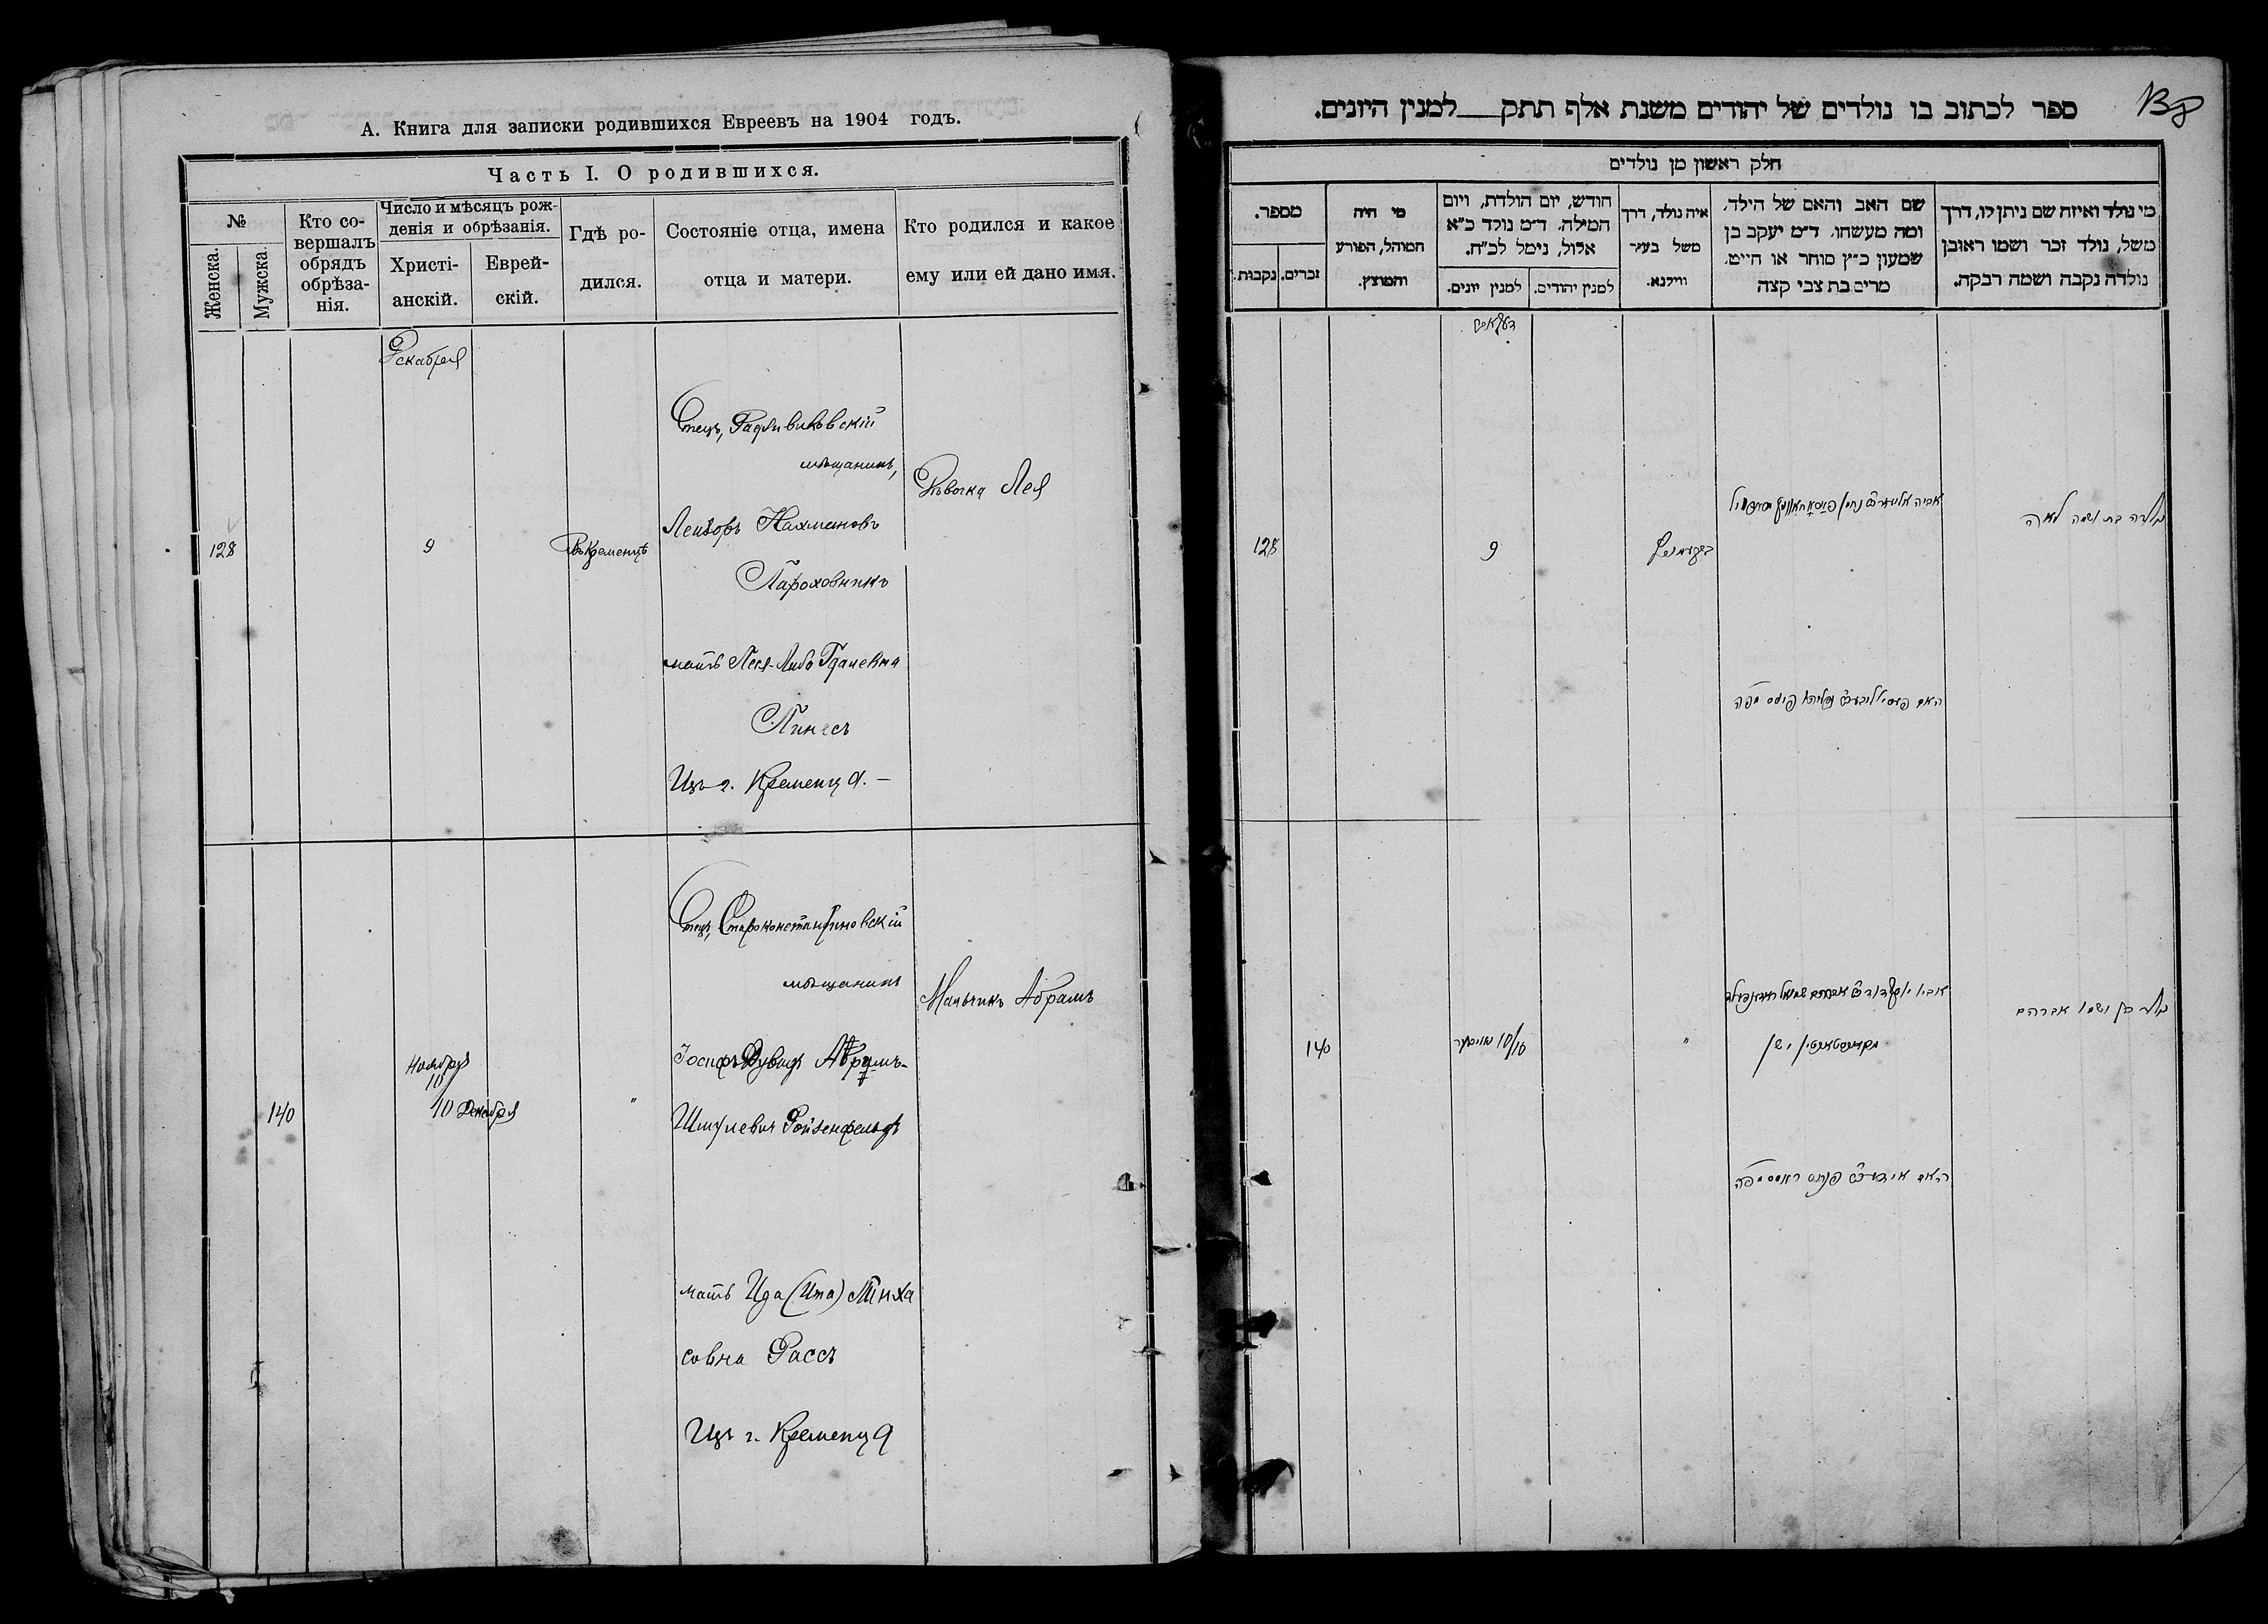 А. Книга для записки родившихся Евреевъ на 1904 годъ.
Часть I. О родившихся.
№
Женска.
Мужска.
Кто со-
вершалъ
обрядъ
обрѣза-
нія.
Число и мѣсяцъ рож-
денія и обрѣзанія.
Христі-
анскій.
Еврей-
скій.
Гдѣ ро-
дился.
Состояніе отца, имена
отца и матери.
Кто родился и какое
ему или ей дано имя.
Декабрея
128
9
Въ Кременцѣ
Отецъ, Радзивиловскій
мѣщанинъ,
Лейзоръ Нахмановъ
Пароховникъ
мать Песя-Либа Гдалевна
Пинесъ
Изъ г. Кременца. —
Дѣвочка Лея
140
Ноября
10
10 Декабря
"
Отецъ, Староконстантиновскій
мѣщанинъ
Іосифъ Дувидъ Абрамъ-
Шмулевич Ройзенфельдъ
мать Ида (Ита) Пинха
совна Рассъ
Изъ г. Кременца
Мальчикъ Абрамъ
ספר לכתוב בו נולדים של יהודים משנת אלף תתק למנין היונים.
חלק ראשון מן נולדים
מי נולד ואיזה שם ניתן לו, דרך
משל, נולד זכר ושמו ראובן
נולדה נקבה ושמה רבקה.
שם האב והאם של הילד,
ומה מעשהו. ד״מ יעקב בן
שמעון כ״ץ סוחר או חייט.
מרים בת צבי קצה
איה נולד, דרך
משל בעיר
ווילנא.
חודש, יום הולדת, ויום
המילה. ד״מ נולד כ״א
אלול, נימל לכ״ח.
למנין יהודים.
למנין יונים.
מי היה
המוהל, הפורע
והמוצץ.
מספר.
זכרים.
נקבות.
128
9
נולדה בת ושמה לאה
140
10/10
"
נולד בן ושמו אברהם